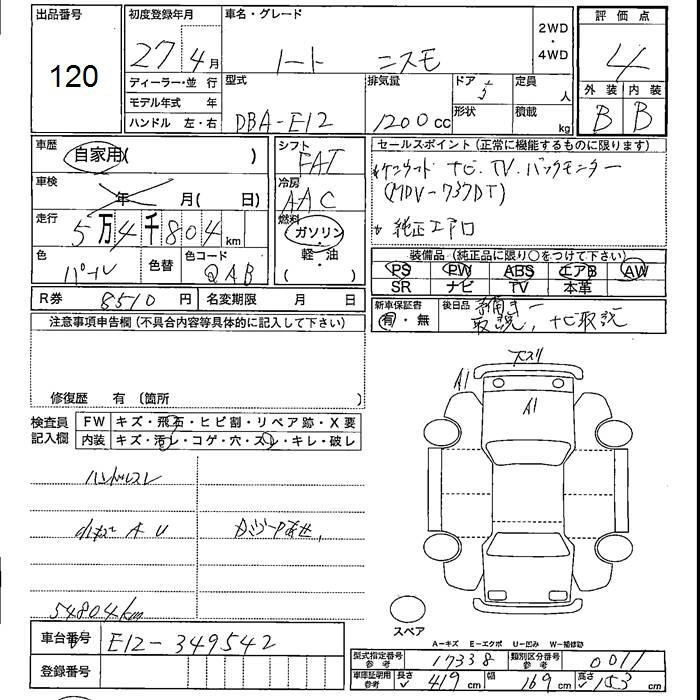 出品番号 初度登録年月 車名・グレード 評価点
120
27年4月 ノート ニスモ 2WD・4WD 4
ディーラー・並行 型式 排気量 ドア 定員 人 外装 内装
モデル年式 年 DBA-E12 1200cc 5 形状 積載 kg B B
ハンドル 左・右
車歴 シフト セールスポイント (正常に機能するものに限ります)
自家用( ) FAT ナビ.TV.バックモニター
車検 冷房 (MDV-737DT)
年 月( 日) AAC
走行 燃料 純正エアロ
5万4千804km ガソリン・軽・油
色 色替 色コード ( ) 装備品 (純正品に限り○をつけて下さい)
パール QAB PS PW ABS エアB AW
SR ナビ TV 本革
R券 8510円 名変期限 月 日 新車保証書 後日品
有・無 取説、ナビ取説
注意事項申告欄 (不具合内容等具体的に記入して下さい)
修復歴 有 〔箇所 〕
検査員記入欄 FW キズ・飛石・ヒビ割・リペア跡・X要
内装 キズ・汚レ・コゲ・穴・スレ・キレ・破レ
下スリ
A1
A1
ハンドルスレ
AU
54804km
スペア
車台番号 E12-349542
登録番号
A-キズ E-エクボ U-凹み W-補修跡
型式指定番号 参考 17338 類別区分番号 参考 0011
車庫証明用 参考 長さ 419cm 幅 169cm 高さ 153cm